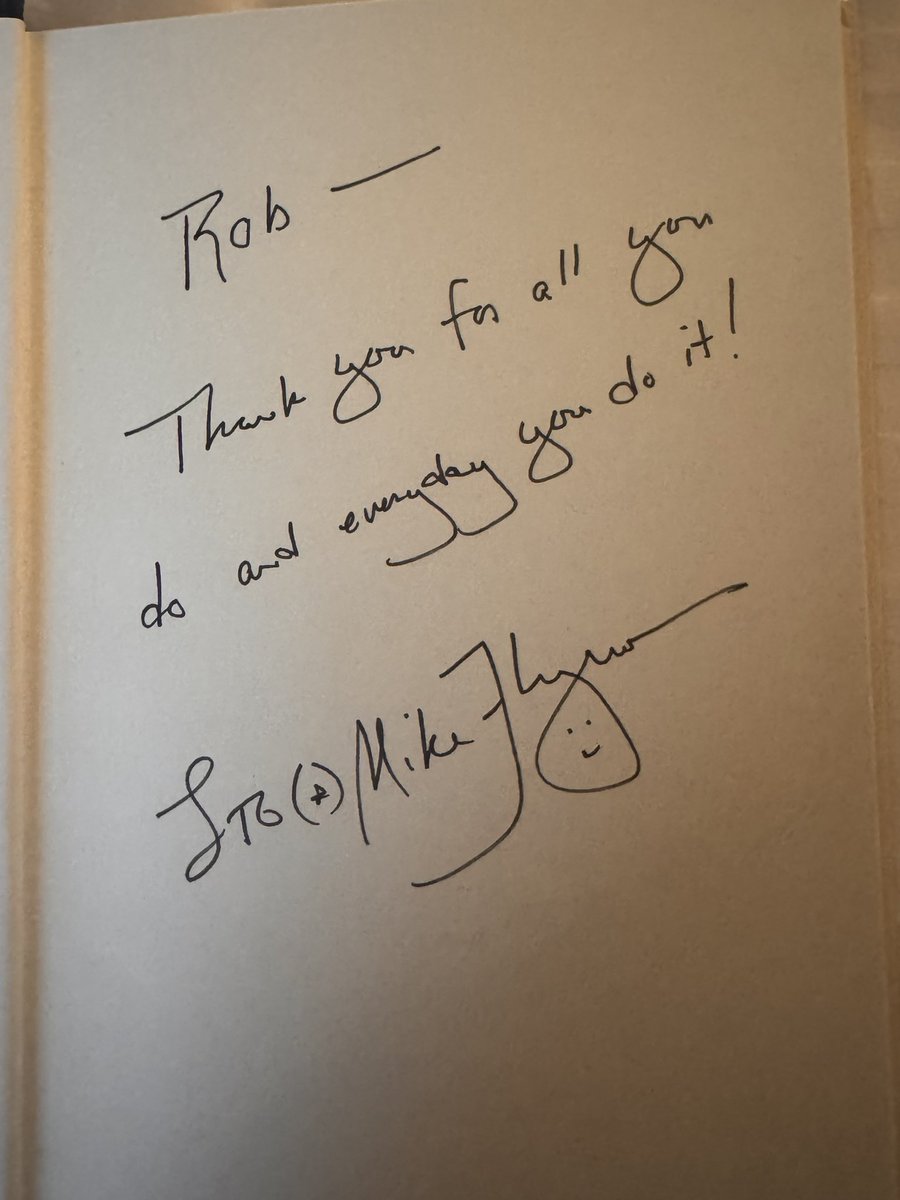 Rob —
Thank you for all you
do and everyday you do it!
Mike